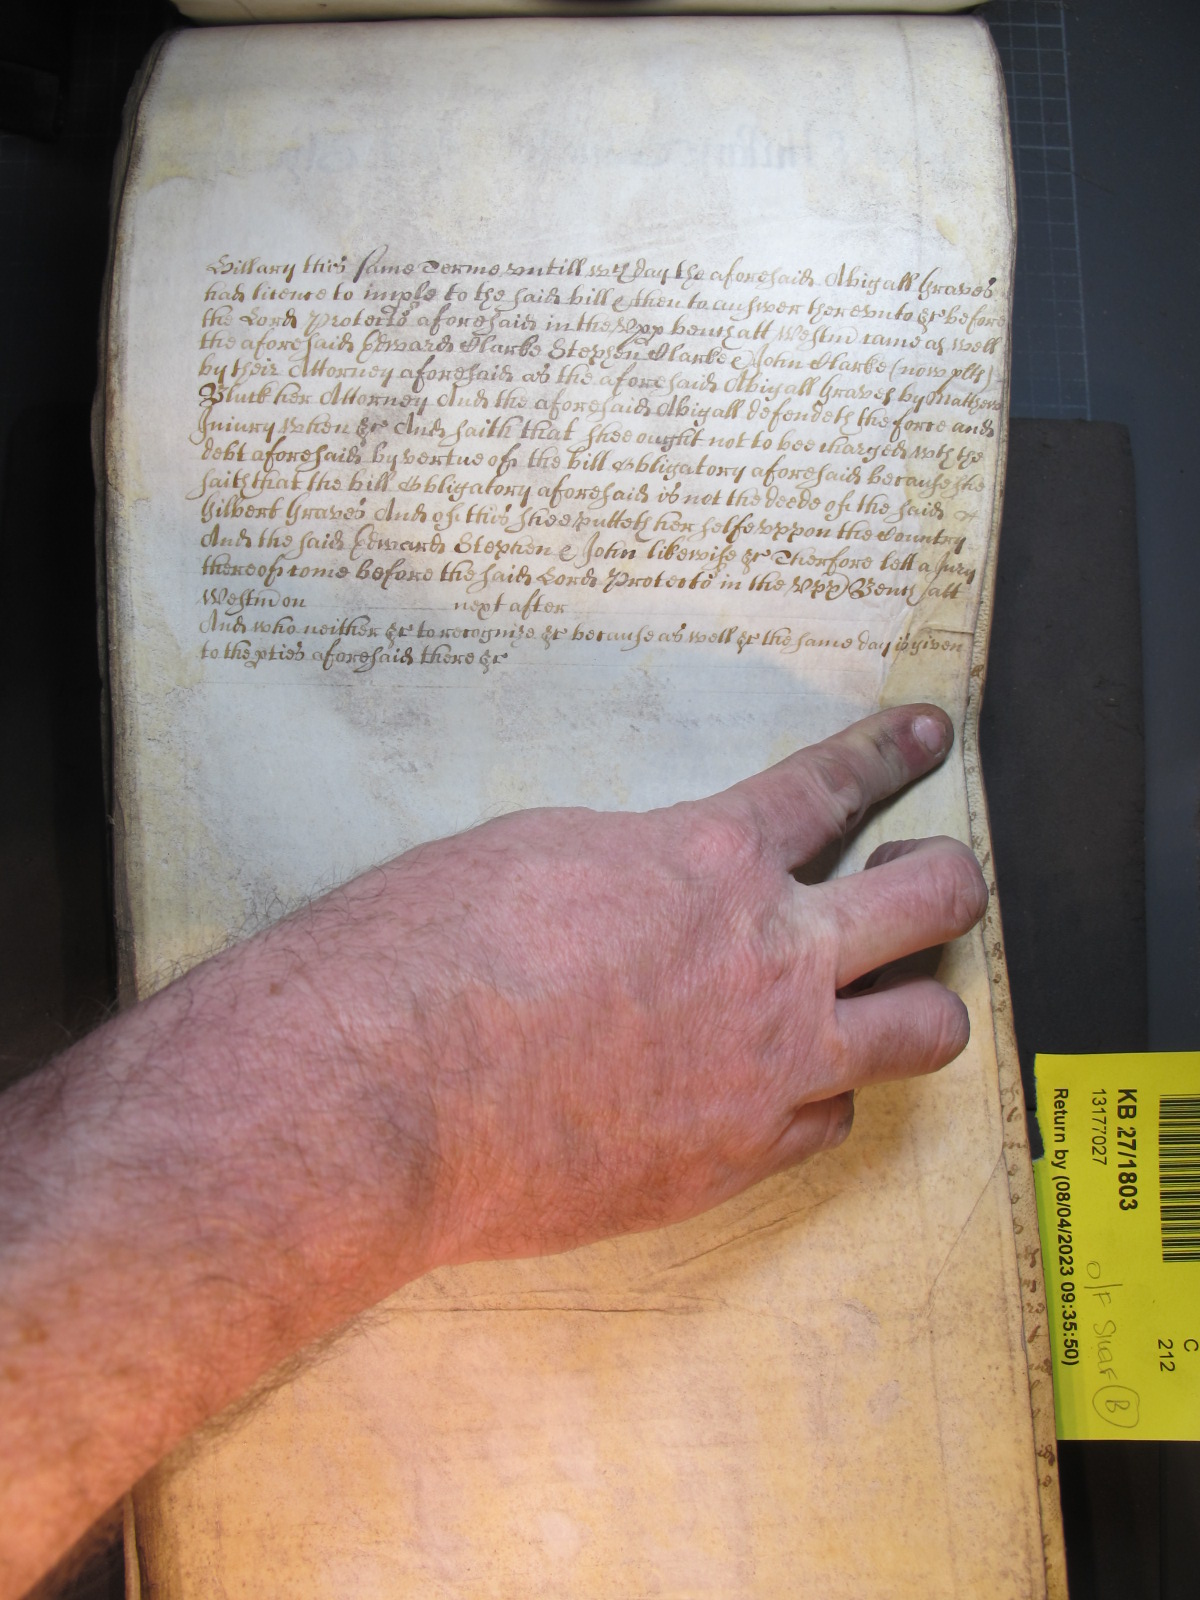 Hillary this same Terme untill wch day the aforesaid Abigall Graves
had licence to imple to the said bill & then to answer thereunto &c before
the Lord Protector aforesaid in the Upp bench att Westm came as well
the aforesaid Edward Clarke Stephen Clarke & John Clarke (now plts)
by their Attorney aforesaid as the aforesaid Abigall Graves by Mathew
Bluck her Attorney And the aforesaid Abigall defendeth the force and
Injury when &c And saith that shee ought not to bee charged wth the
debt aforesaid by vertue of the bill Obligatory aforesaid because she
saith that the bill Obligatory aforesaid is not the deede of the said
Gilbert Graves And of this shee putteth her selfe uppon the Country
And the said Edward Stephen & John likewise &c Therfore lett a Jury
thereof come before the said Lord Protector in the Upp Bench att
Westm on next after
And who neither &c to recognize &c because as well &c the same day is given
to the pties aforesaid there &c
KB 27/1803
13177027
Return by (08/04/2023 09:35:50)
C
212
O/F Shelf B